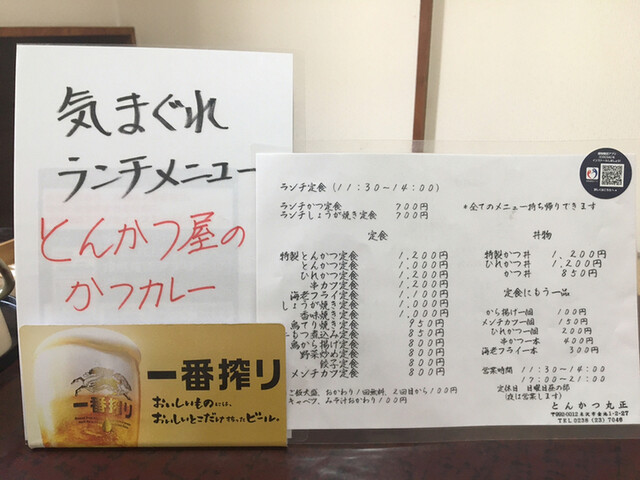 気まぐれ
ランチメニュー
とんかつ屋の
かつカレー
一番搾り
一番搾り
おいしいものには、
おいしいとこだけ搾ったビール。
ランチ定食(11:30~14:00)
ランチかつ定食 700円
ランチしょうが焼き定食 700円
*全てのメニュー持ち帰りできます
定食
特製とんかつ定食 1,200円
とんかつ定食 1,000円
ひれかつ定食 1,200円
串カツ定食
海老フライ定食 1,100円
しょうが焼き定食 1,000円
香味焼き定食 1,000円
鳥てり焼き定食 950円
もつ煮込み定食 850円
鳥から揚げ定食 800円
野菜炒め定食 800円
餃子定食 800円
メンチカツ定食 800円
ご飯大盛、おかわり1回無料、2回目から100円
キャベツ、みそ汁おかわり100円
丼物
特製かつ丼 1,200円
ひれかつ丼 1,200円
かつ丼 850円
定食にもう一品
から揚げ一個 100円
メンチカツ一個 150円
ひれかつ一個 200円
串かつ一本 400円
海老フライ一本 300円
営業時間 11:30~14:00
17:00~21:00
定休日 日曜日昼の部
(夜は営業します)
とんかつ丸正
〒992-0012 米沢市金池1-2-27
TEL0238 (23) 7048